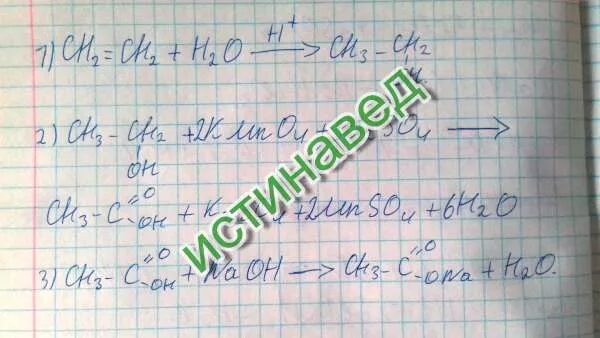 1) CH2 = CH2 + H2O —H+→ CH3 – CH2
2) CH3 – CH2 + 2KMnO4 + SO4 ⟶
OH
CH3 – C =O –OH + K + 2MnSO4 + 6H2O
3) CH3 – C =O –OH + NaOH ⟶ CH3 – C =O –ONa + H2O.
ИСТИНАВЕД